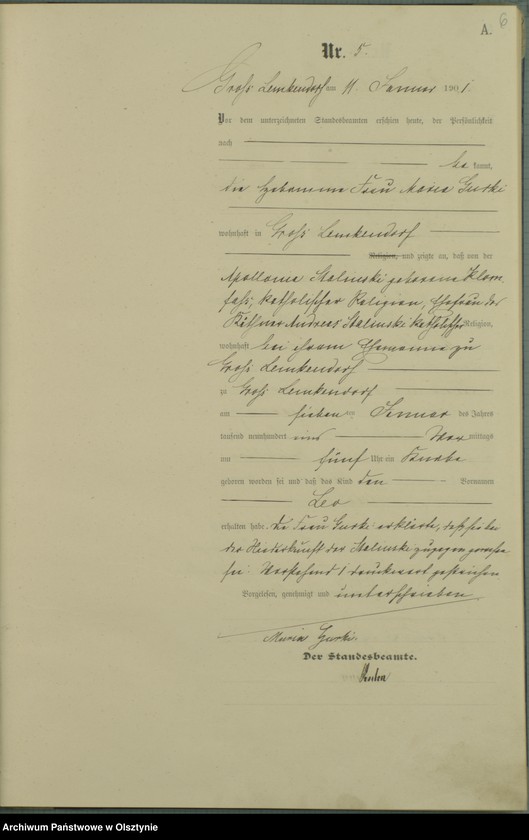 6
A.
Nr. 5.
Groß Lemkendorf am 11. Januar 1901.
Vor dem unterzeichneten Standesbeamten erschien heute, der Persönlichkeit
nach
be kannt,
die Hebamme Frau Maria Gurki
wohnhaft in Groß Lemkendorf
Religion, und zeigte an, daß von der
Apollonia Stalinski geborene
katholischer Religion, Ehefrau des
Käthner Andreas Stalinski katholischer Religion,
wohnhaft bei ihrem Ehemanne zu
Groß Lemkendorf
zu Groß Lemkendorf
am sieben ten Januar des Jahres
tausend neunhundert eins Vor mittags
um fünf Uhr ein Knabe
geboren worden sei und daß das Kind den Vornamen
Leo
erhalten habe. Die Frau Gurki erklärte, daß sie bei
der Niederkunft der Stalinski zugegen gewesen
sei. Vorstehend 1 Druckwort gestrichen
Vorgelesen, genehmigt und unterschrieben
Maria Gurki.
Der Standesbeamte.
Archiwum Państwowe w Olsztynie